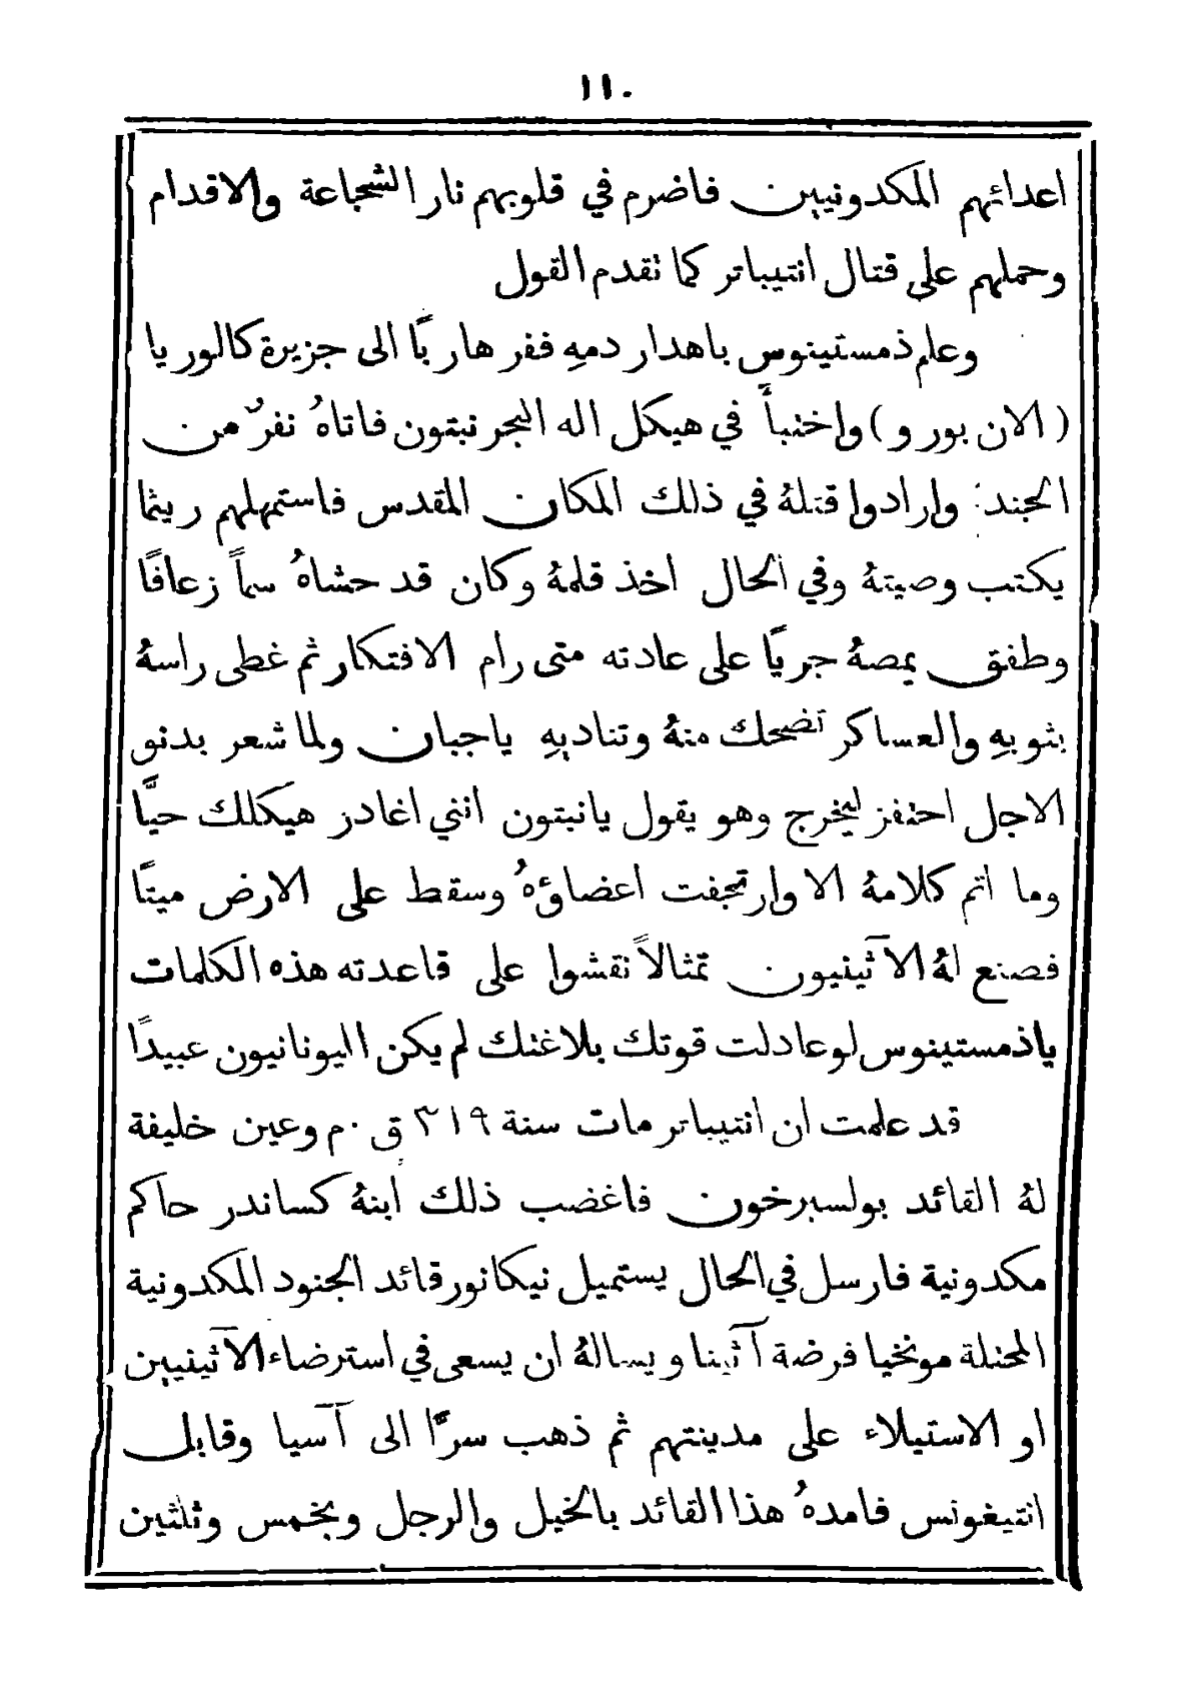 ١١٠
اعدائهم المكدونيين فاضرم في قلوبهم نار الشجاعة والاقدام
وحملهم على قتال انتيباتر كما تقدم القول
وعلم ذمستينوس باهدار دمهِ ففر هاربًا الى جزيرة كالوريا
( الان بورو ) واختبأ في هيكل اله البحر نبتون فاتاهُ نفرٌ من
الجند وارادوا قتلهُ في ذلك المكان المقدس فاستمهلهم ريثما
يكتب وصيتهُ وفي الحال اخذ قلمهُ وكان قد حشاهُ سماً زعافًا
وطفق يمصهُ جريًا على عادته متى رام الافتكار ثم غطى راسهُ
بثوبهِ والعساكر تضحك منهُ وتناديهِ ياجبان ولما شعر بدنو
الاجل احتفز ليخرج وهو يقول يانبتون انني اغادر هيكلك حيًّا
وما اتم كلامهُ الا وارتجفت اعضاؤهُ وسقط على الارض ميتًا
فصنع لهُ الآثينيون تمثالاً نقشوا على قاعدته هذه الكلمات
ياذمستينوس لو عادلت قوتك بلاغتك لم يكن اليونانيون عبيدًا
قد علمت ان انتيباتر مات سنة ٣١٩ ق . م وعين خليفة
لهُ القائد بولسبرخون فاغضب ذلك ابنهُ كساندر حاكم
مكدونية فارسل في الحال يستميل نيكانور قائد الجنود المكدونية
المحتلة مونخيا فرضة آثينا ويسالهُ ان يسعى في استرضاء الآثينيين
او الاستيلاء على مدينتهم ثم ذهب سرًّا الى آسيا وقابل
انتيغونس فامدهُ هذا القائد بالخيل والرجل وبخمس وثلثين